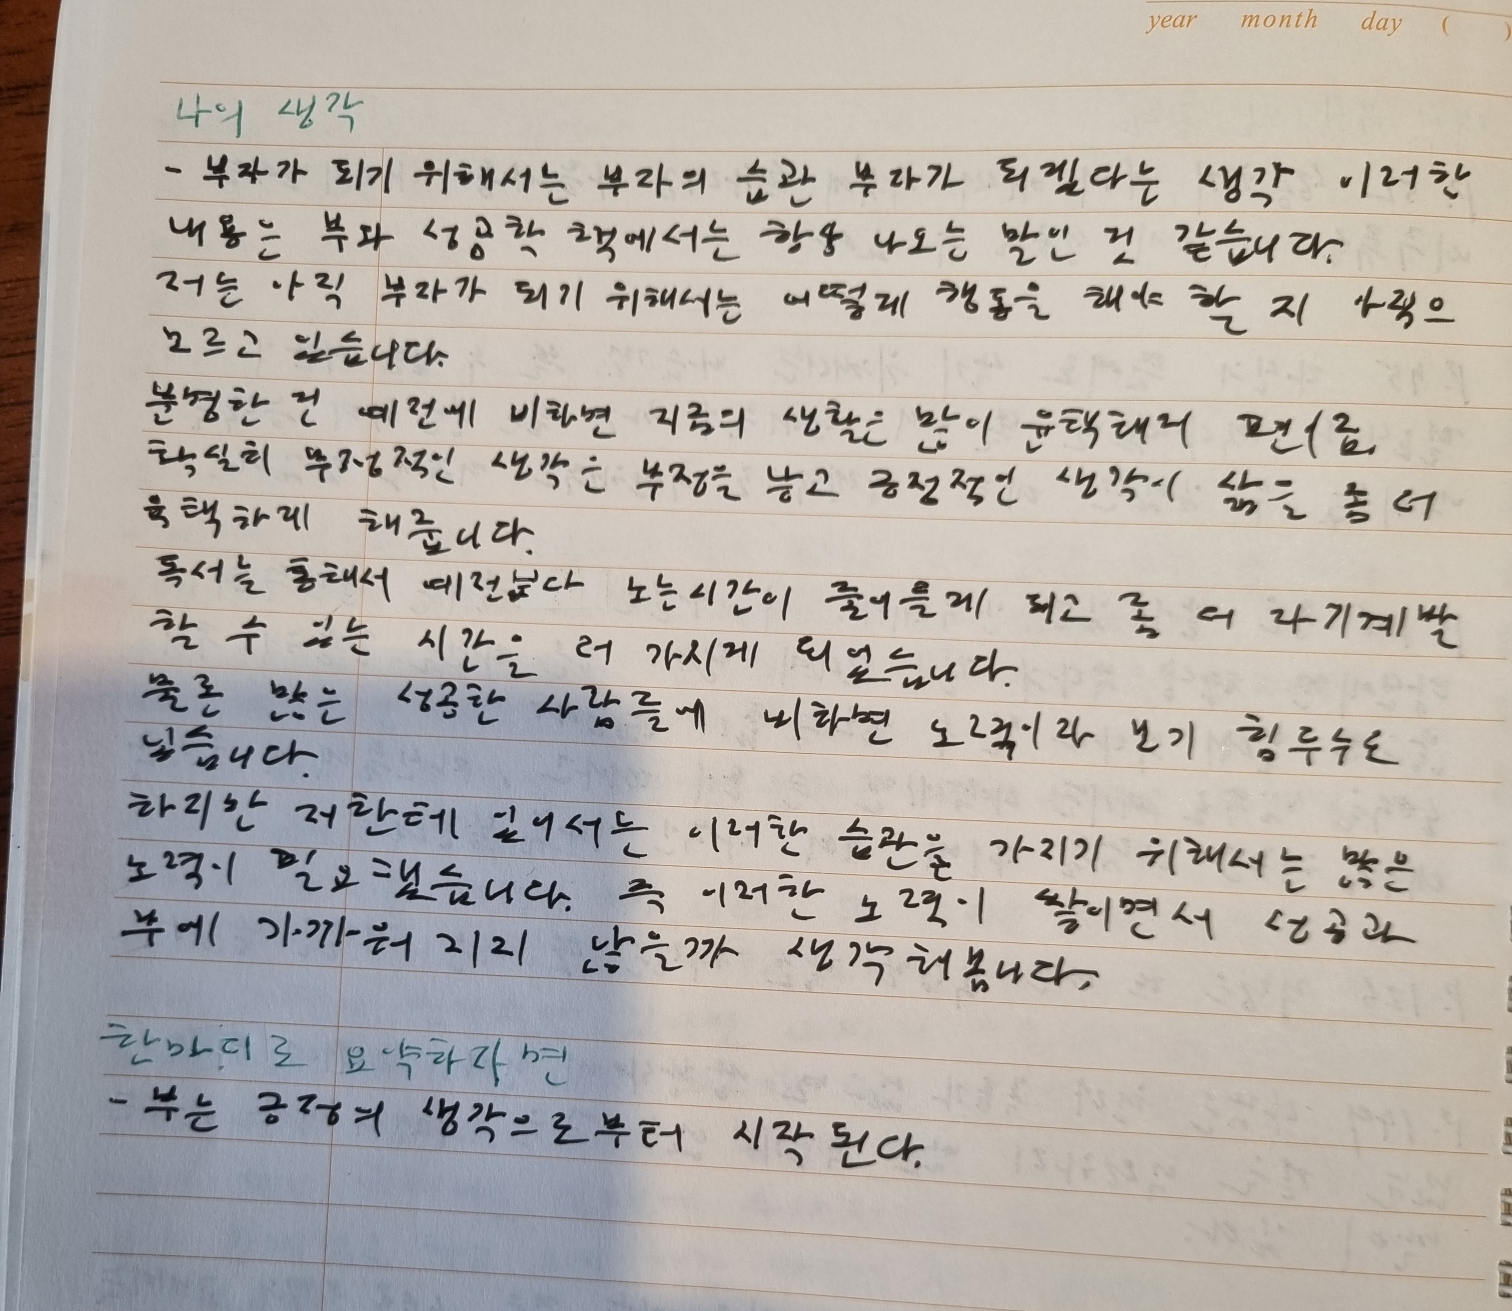 year month day ( )
나의 생각
- 부자가 되기 위해서는 부자의 습관 부자가 되겠다는 생각 이러한
내용은 부와 성공학 책에서는 항상 나오는 말인 것 같습니다.
저는 아직 부자가 되기 위해서는 어떻게 행동을 해야 할 지
모르고 있습니다.
분명한 건 예전에 비하면 지금의 생활은 많이 윤택해지
확실히 부정적인 생각은 부정을 낳고 긍정적인 생각이 삶을 좀 더
윤택하게 해줍니다.
독서를 통해서 예전보다 노는시간이 줄어들게 되고 좀 더 자기계발
할 수 있는 시간을 더 가지게 되었습니다.
물론 많은 성공한 사람들에 비하면 노력이라 보기 힘들수도
있습니다.
하지만 저한테 있어서는 이러한 습관을 가지기 위해서는 많은
노력이 필요했습니다. 즉 이러한 노력이 쌓이면서 성공과
부에 가까워 지지 않을까 생각해봅니다.
한마디로 요약하자면
- 부는 긍정의 생각으로부터 시작된다.